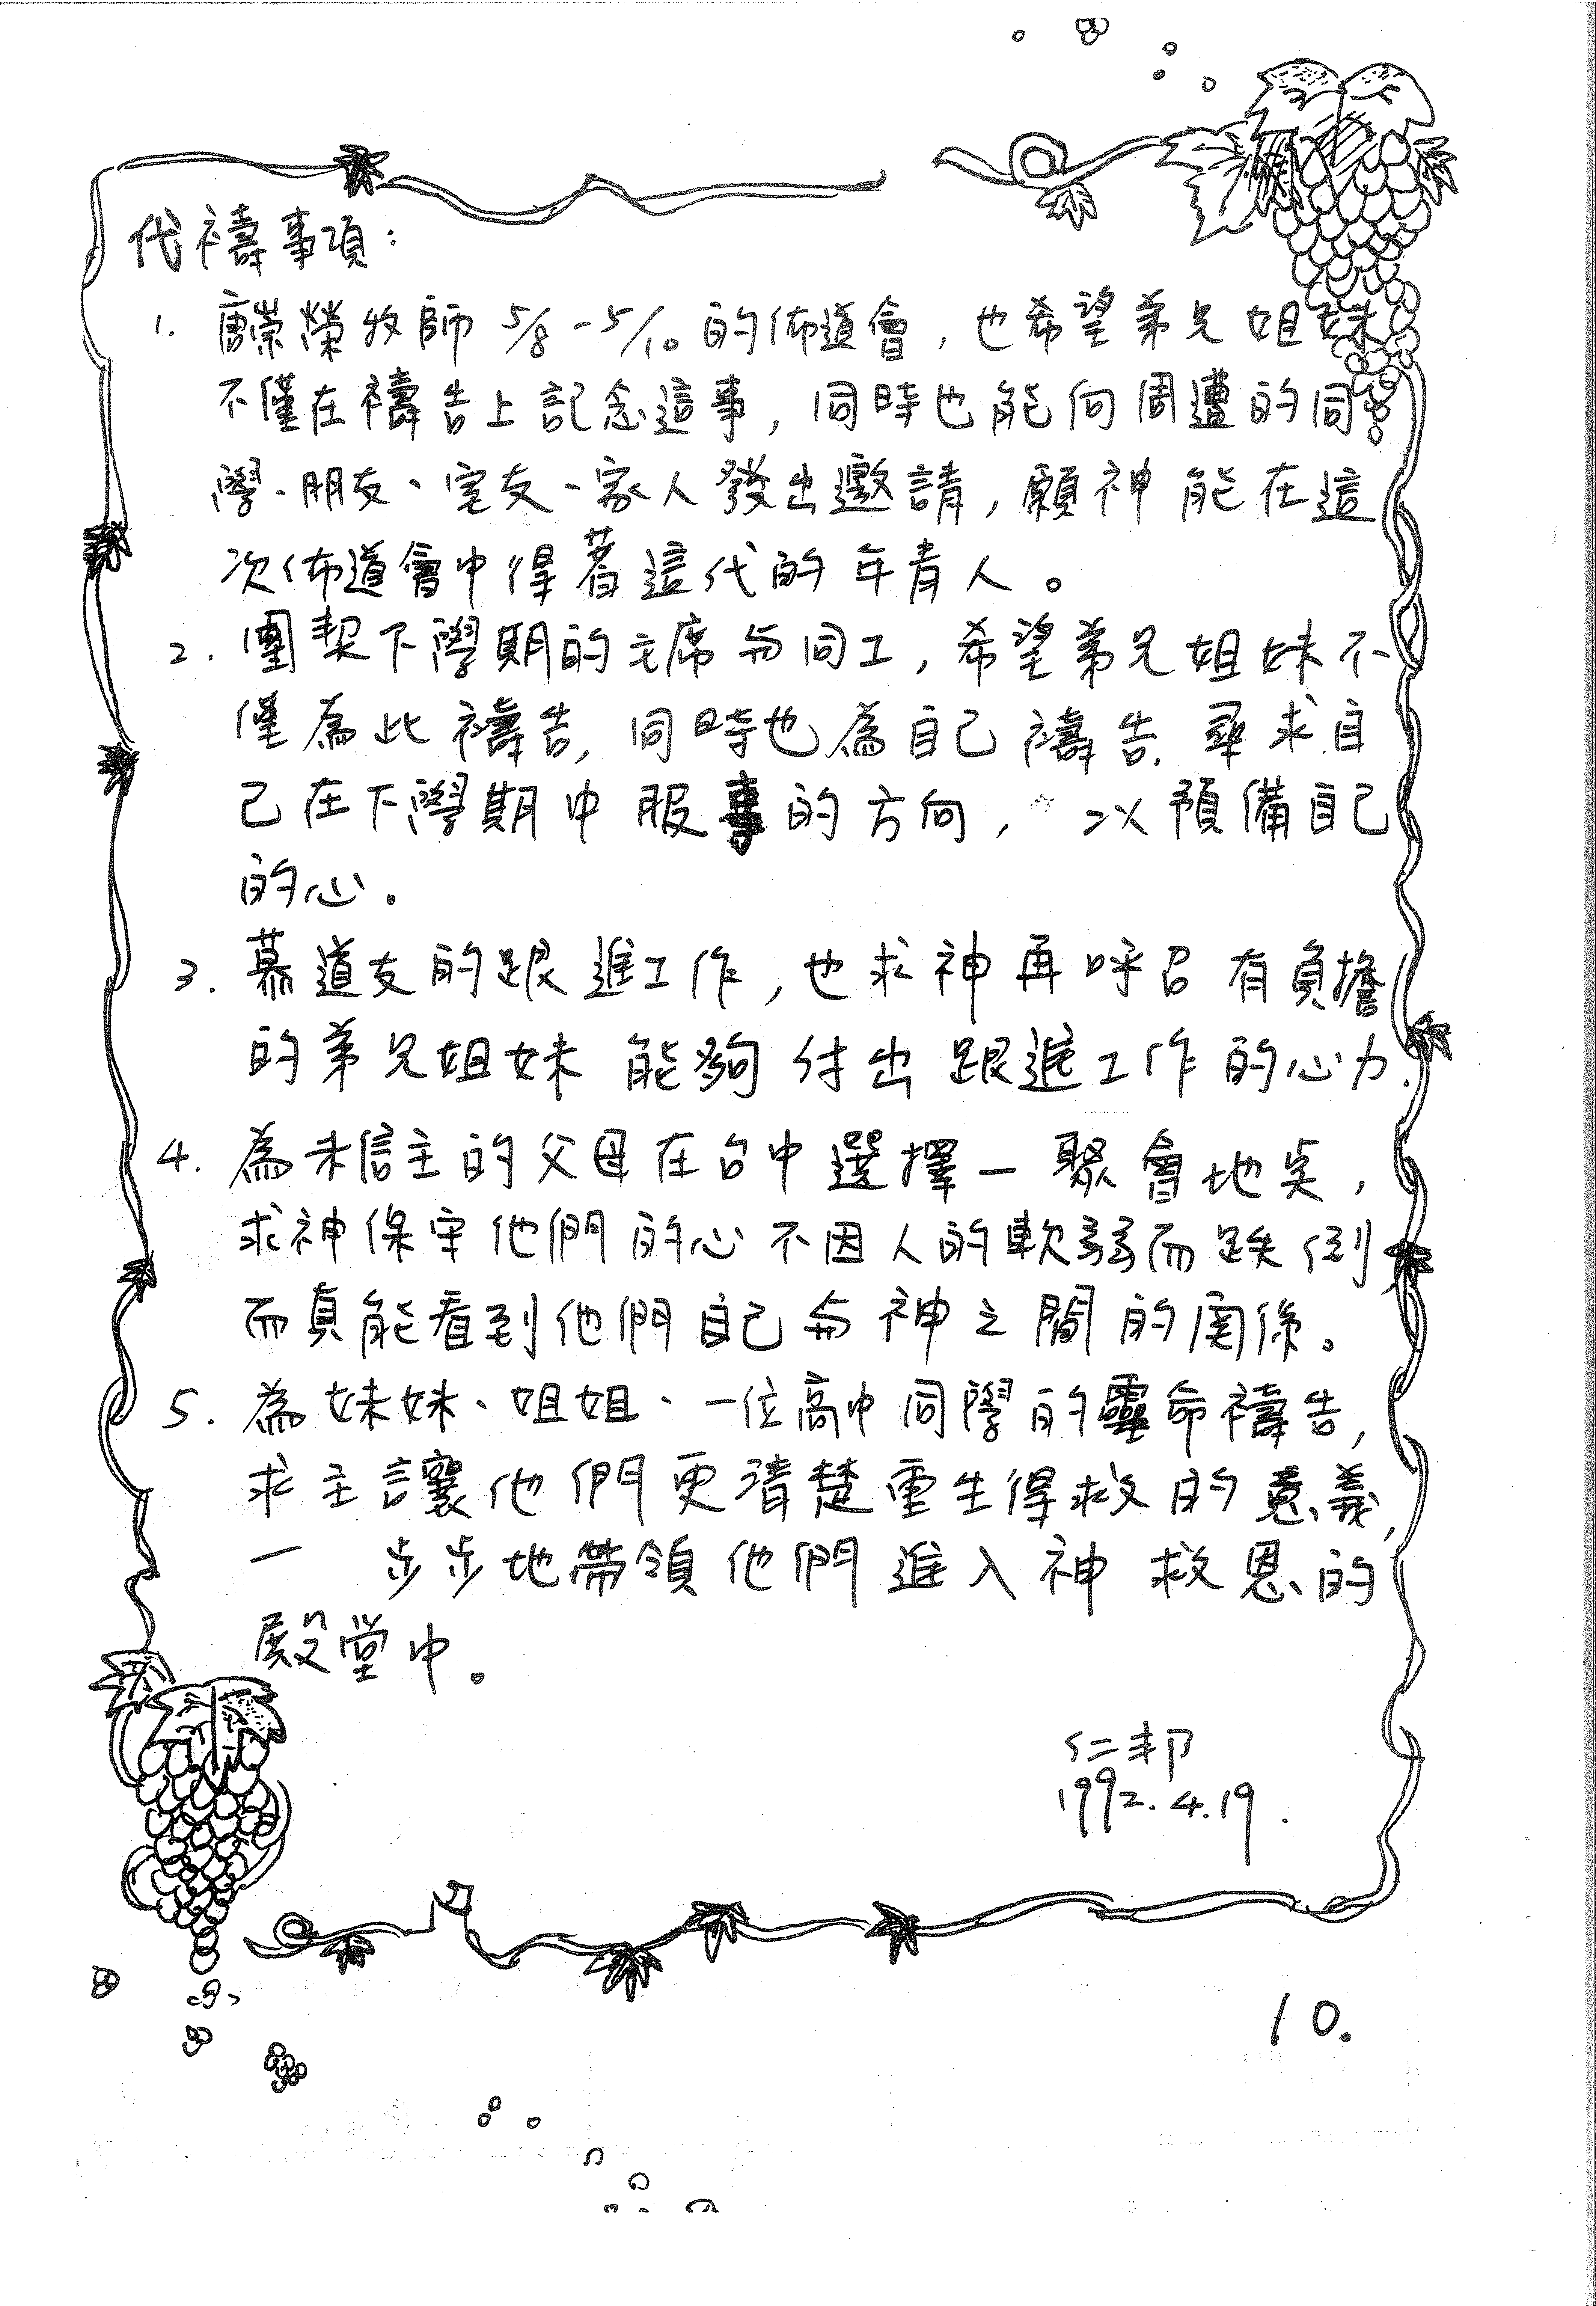 代禱事項:
1. 唐崇榮牧師 5/8-5/10 的佈道會，也希望弟兄姐妹
不僅在禱告上記念這事，同時也能向周遭的同
學、朋友、室友、家人發出邀請，願神能在這
次佈道會中得著這代的年青人。
2. 團契下學期的主席与同工，希望弟兄姐妹不
僅為此禱告，同時也為自己禱告，尋求自
己在下學期中服事的方向，以預備自己
的心。
3. 慕道友的跟進工作，也求神再呼召有負擔
的弟兄姐妹能夠付出跟進工作的心力.
4. 為未信主的父母在台中選擇一聚會地点，
求神保守他們的心不因人的軟弱而跌倒
而真能看到他們自己与神之間的関係。
5. 為妹妹、姐姐、一位高中同學的靈命禱告，
求主讓他們更清楚重生得救的意義，
一步步地帶領他們進入神救恩的
殿堂中。
仁邦
1992.4.19.
10.